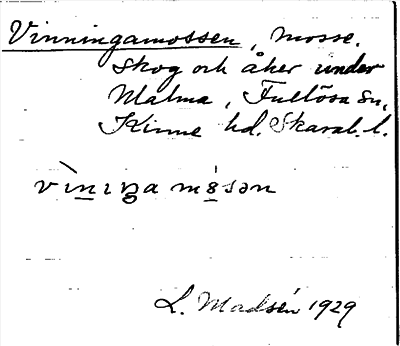 Vinningamossen, mosse.
Skog och åker under
Malma, Fullösa sn,
Kinne hd. Skarab. l.
vìniŋa mósən
L. Madsén 1929